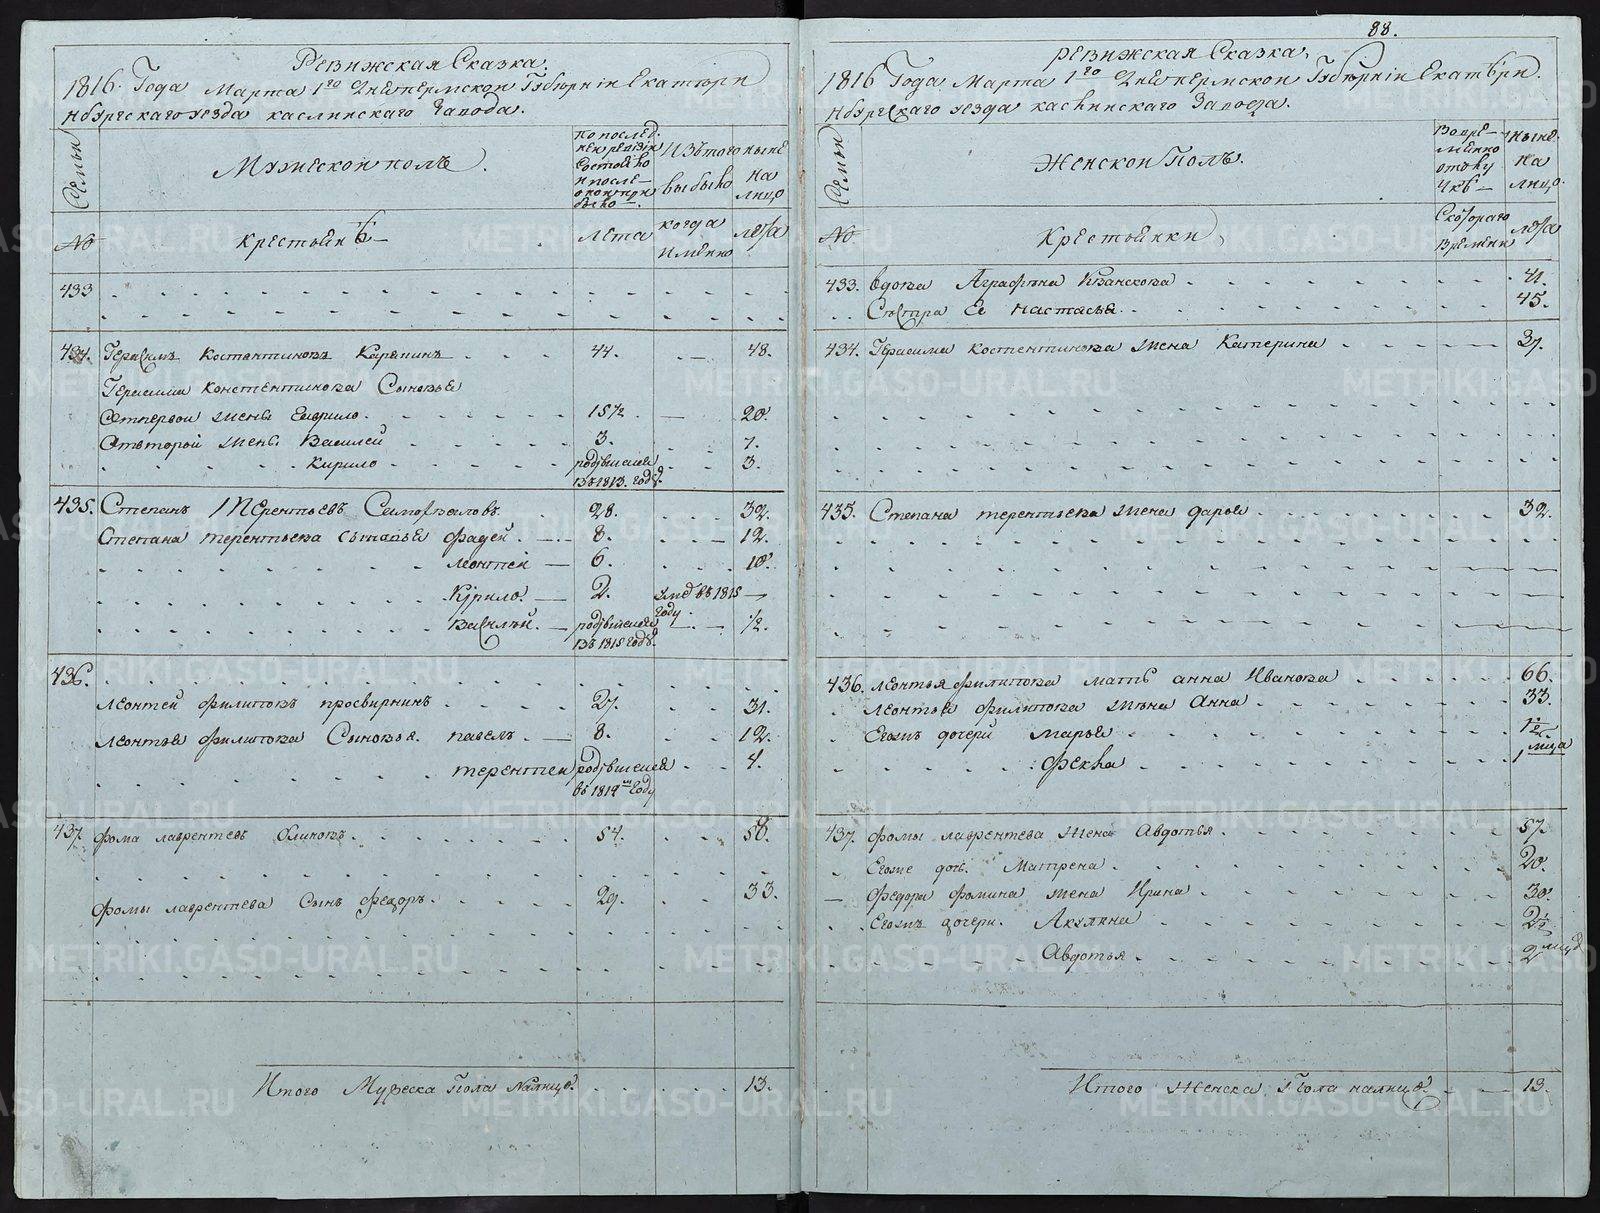 88.
Ревижская Сказка.
1816. Года Марта 1го Дня пермской Губернiи Екатери
нбургскаго уезда каслинскаго Завода.
Семьи
Мужеской полъ.
По послед.
ней ревизiи
состояло
и после
оной при
было
Изъ того
выбыло
ныне
на
лицо
№
крестьян
лета
когда
имянно
лета
433
434. Герасимъ Костантиновъ Карапинъ 44. 48.
Герасима константинова Сыновья
Отпервой жены Гаврило. 15 1/2 20.
Отвторой жены Василей 3. 7.
Кирило родившейся 3.
въ 1813. годе.
435. Степанъ Терентьевъ 28. 32.
Степана терентьева сыновья фадей. 8. 12.
леонтей 6. 10.
Кирило. 2. умре въ 1815
году.
Василей. родившейся 1/2.
въ 1815 годе.
436.
леонтей филиповъ просвирнинъ 27. 31.
леонтья филипова Сыновья. павелъ. 8. 12.
терентей родившейся 4.
въ 1812м году
437. фома лаврентевъ Блиновъ. 54. 58.
фомы лаврентева Сынъ федоръ. 29. 33.
Итого Мужеска пола Налицо. 13.
ревижская Сказка,
1816 Года Марта 1го Дня пермской Губернiи Екатерин
нбургскаго уезда каслинскаго Завода.
Семьи
Женской Полъ.
Вовре-
мянно
отлу
чкѣ
ныне
на
лицо.
№
Крестьянки
Скотораго
времени
лета
433. вдова Аграфена Иванова 41.
Сестра Ее Настасья. 45.
434. Герасима костентинова жена Катерина 37.
435. Степана терентьева жена дарья. 32.
436. леонтья филипова мать анна Иванова 66.
леонтья филипова жена Анна 33.
Егожъ дочери марья 1 1/2.
Фекла мца
437. фомы лаврентева жена Авдотья. 57.
Егоже дочь. Матрена. 20.
Федора фомина жена Ирина 30.
Егожъ дочери. Акулина 2 1/2
Авдотья. 2 мцд
Итого Женска Пола налицо. 13.